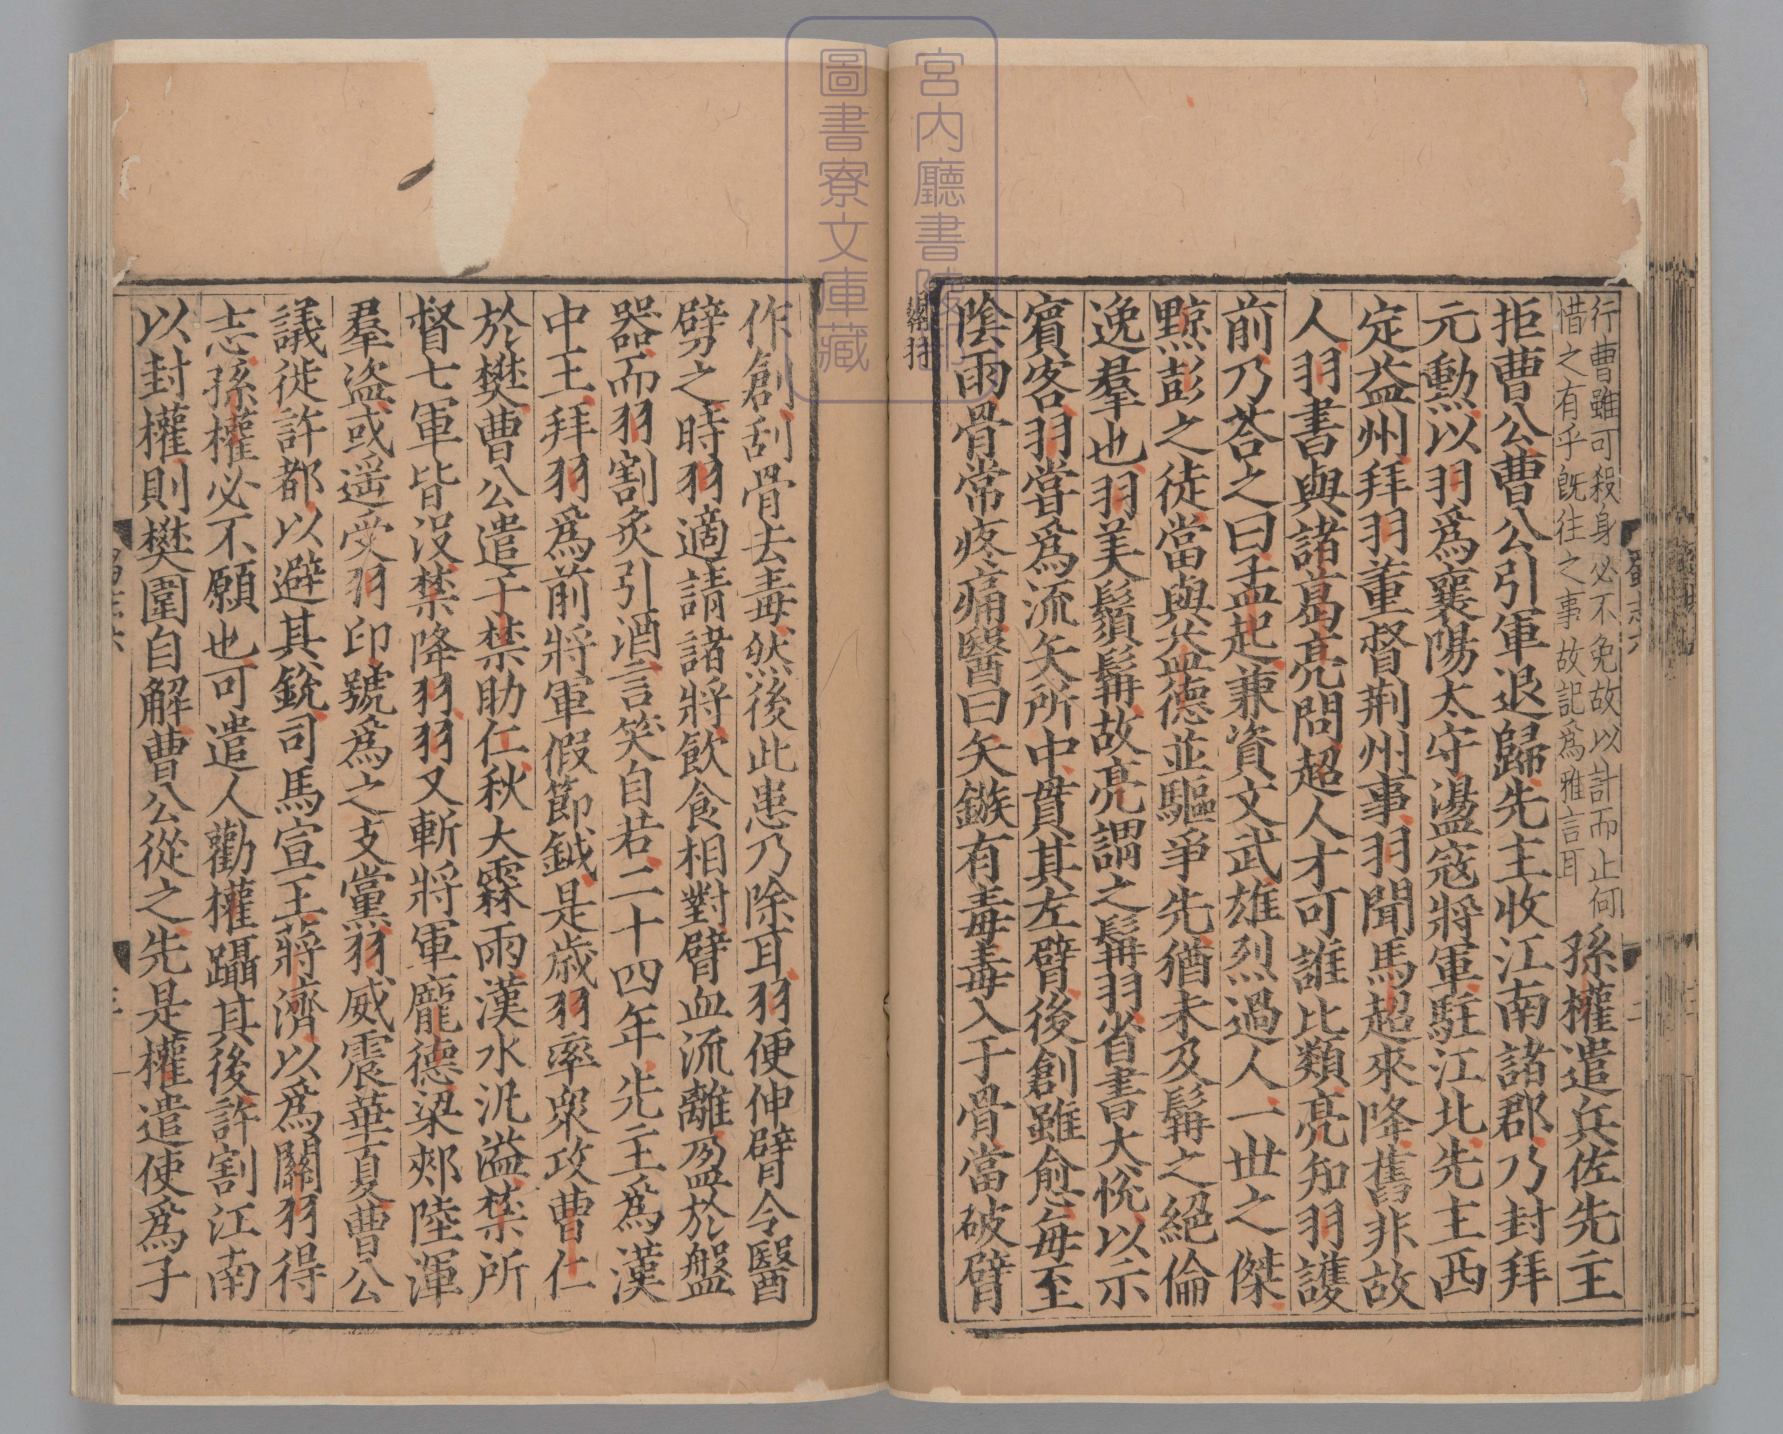 行曹雖可殺身必不免故以計而止何
惜之有乎旣往之事故記爲雅言耳
孫權遣兵佐先主
拒曹公曹公引軍退歸先主收江南諸郡乃封拜
元勳以羽爲襄陽太守盪寇將軍駐江北先主西
定益州拜羽董督荆州事羽聞馬超來降舊非故
人羽書與諸葛亮問超人才可誰比類亮知羽護
前乃荅之曰孟起兼資文武雄烈過人一世之傑
黥彭之徒當與益德並驅爭先猶未及髯之絕倫
逸羣也羽美鬚髯故亮謂之髯羽省書大悅以示
賓客羽嘗爲流矢所中貫其左臂後創雖愈每至
陰雨骨常疼痛醫曰矢鏃有毒毒入于骨當破臂
作創刮骨去毒然後此患乃除耳羽便伸臂令醫
劈之時羽適請諸將飲食相對臂血流離盈於盤
器而羽割炙引酒言笑自若二十四年先主爲漢
中王拜羽爲前將軍假節鉞是歲羽率衆攻曹仁
於樊曹公遣于禁助仁秋大霖雨漢水汎溢禁所
督七軍皆沒禁降羽羽又斬將軍龐德梁郟陸渾
羣盜或遥受羽印號爲之支黨羽威震華夏曹公
議徙許都以避其銳司馬宣王蔣濟以爲關羽得
志孫權必不願也可遣人勸權躡其後許割江南
以封權則樊圍自解曹公從之先是權遣使爲子
蜀志六
二
宮内廳書陵部
圖書寮文庫藏